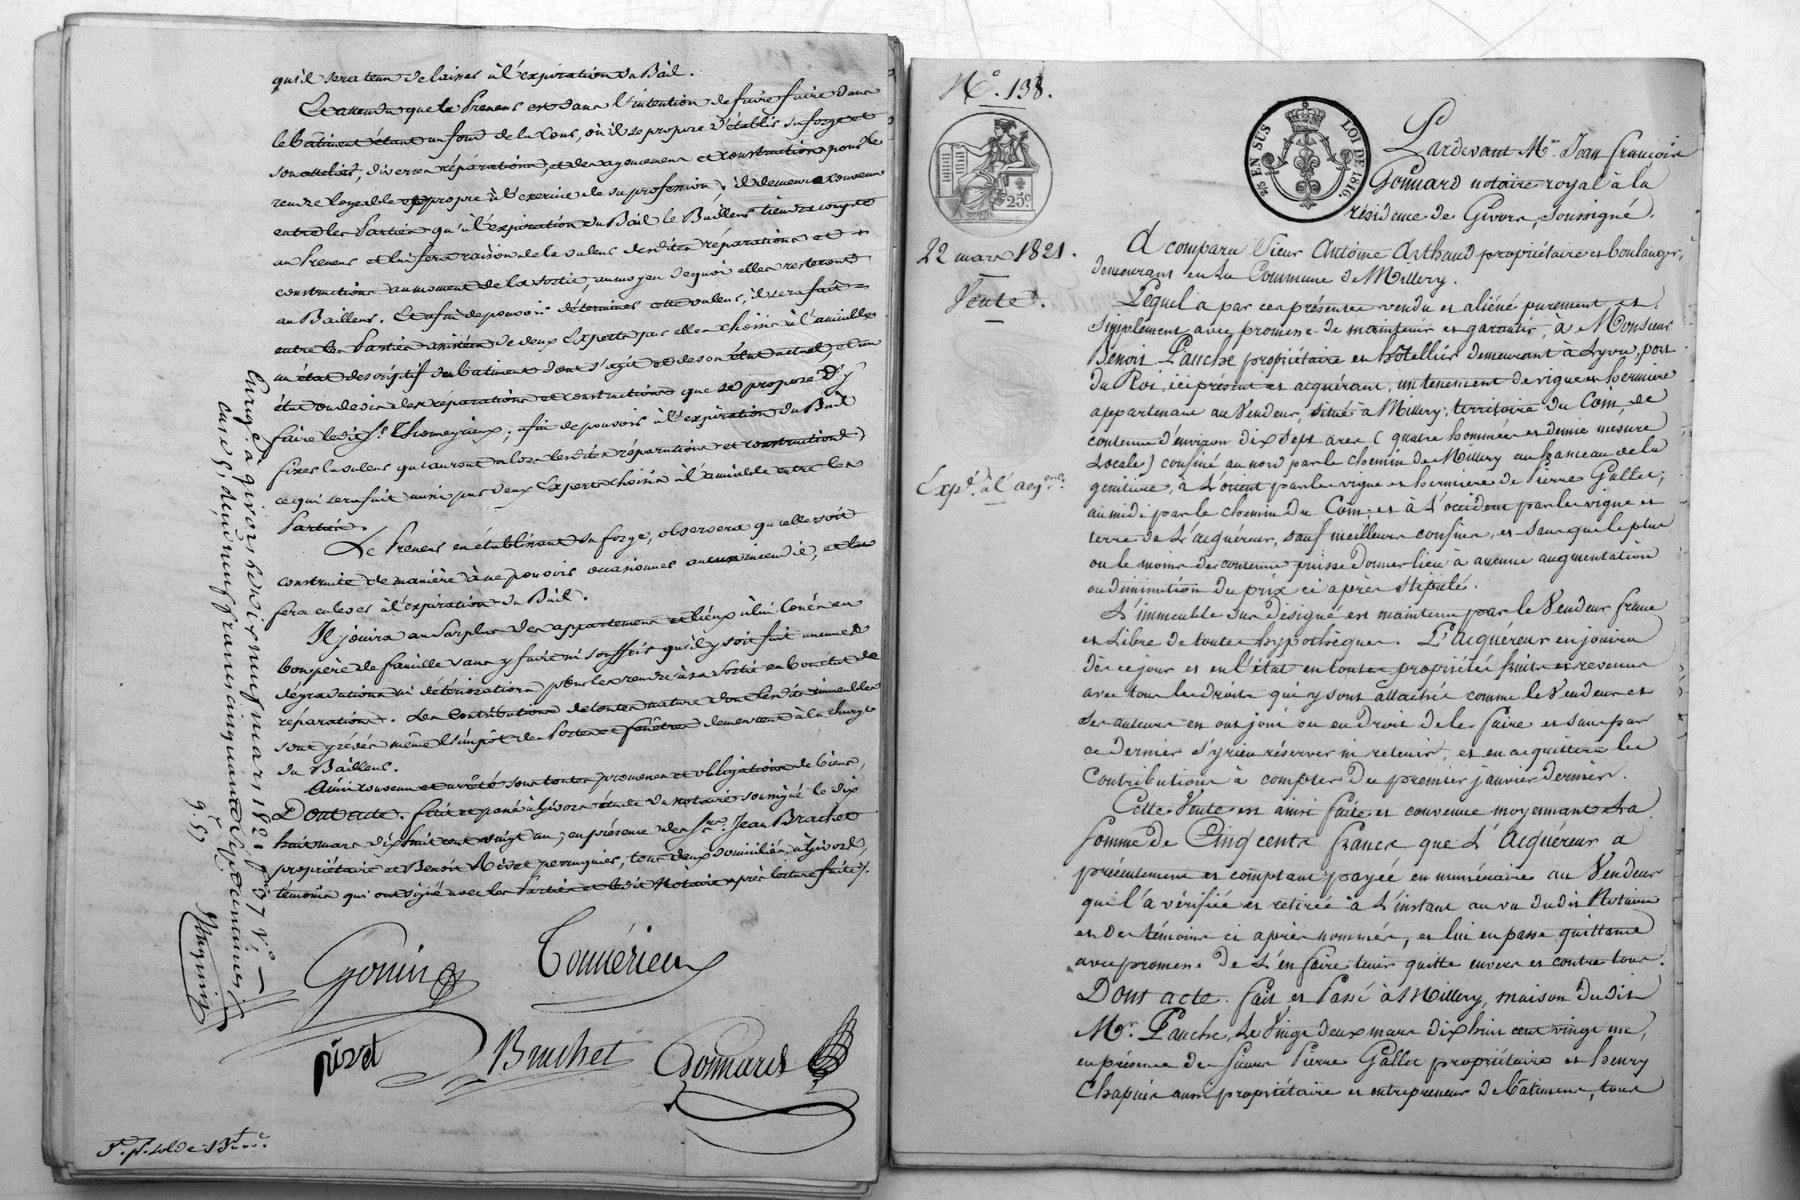 qu'il sera tenu de laisser à l'expiration du Bail.
Et attendu que le Preneur est dans l'intention de faire faire dans
le bâtiment étant au fond de la Cour, où il se propose d'établir sa forge et
son attelier, diverses réparations, et des agencemens et constructions pour le
rendre logeable et propre à l'exercice de sa profession, il demeure convenu
entre les Parties qu'à l'expiration du Bail le Bailleur tiendra compte
au Preneur et lui fera raison de la valeur desdites réparations et
constructions au moment de la sortie, au moyen de quoi elles resteront
au Bailleur. Et afin de pouvoir déterminer cette valeur, il sera fait
entre les Parties assistées de deux Experts par elles choisis à l'amiable
un état descriptif du bâtiment dont s'agit et de son état actuel, et un
état ou devis des réparations et constructions que se propose d'y
faire ledit Sr. Thomeyrieux, afin de pouvoir à l'expiration du Bail
fixer la valeur qu'auront alors lesdites réparations et constructions,
ce qui sera fait aussi par deux Experts choisis à l'amiable entre les
Parties.
Le Preneur en établissant sa forge, observera qu'elle soit
construite de manière à ne pouvoir occasionner aucun incendie, et la
fera enlever à l'expiration du Bail.
Il jouira au surplus des appartemens et lieux à lui loués en
bon père de famille sans y faire ni souffrir qu'il y soit fait aucunes
dégradations ni détériorations, pour les rendre à sa sortie en bon état de
réparations. Les Contributions de toutes nature dont lesdits immeubles
sont grévés même l'impôt des Portes et fenêtres demeurent à la charge
du Bailleur.
Ainsi convenu et arrêté sous toutes promesses et obligations de biens,
Dont acte. fait et passé à Givors étude du notaire soussigné le dix
huit mars dix huit cent vingt un, en présence des Srs. Jean Brachet
propriétaire et Benoit Rivet perruquier, tous deux domiciliés à Givors,
témoins qui ont signé avec les Parties et ledit Notaire après lecture faite.
Gonin
rivet
Brachet
Gonnard
Enregé. à givors le dix neuf mars 1821 fo. 37 vo.
N°. 138.
25 c
25 EN SUS LOI DE 1816.
22 mars 1821.
Vente.
Expé. à l'acqreur.
Pardevant Me. Jean françois
Gonnard notaire royal à la
résidence de Givors, soussigné.
A comparu Sieur Antoine Arthaud propriétaire et boulanger,
demeurant en la Commune de Millery.
Lequel a par ces présentes vendu et aliéné purement et
simplement avec promesse de maintenir et garantir, à Monsieur
Benoit Pauche propriétaire et hôtellier demeurant à Lyon, port
du Roi, ici présent et acquérant, un tenement de vigne et hermiere
appartenant au Vendeur, situé à Millery, territoire du Com, de
contenue d'environ dix sept ares (quatre hommées et demie mesure
Locale) confiné au nord par le chemin de Millery au hameau de la
geniture, à L'orient par les vigne et hermiere de Pierre Gallet;
au midi par le chemin du Com; et à L'occident par les vigne et
terre de L'acquéreur, sauf meilleurs confins, et sans que le plus
ou le moins de contenue puisse donner lieu à aucune augmentation
ou diminution du prix ci après stipulé.
L'immeuble sus désigné est maintenu par le Vendeur franc
et Libre de toutes hypothèques. L'acquéreur en jouira
dès ce jour et en l'état en toutes propriétés fruits et revenus
avec tous les droits qui y sont attachés comme le Vendeur et
ses auteurs en ont joui ou eu Droit de le faire et sans par
ce dernier s'y rien réserver ni retenir, et en acquittera les
Contributions à compter du premier janvier dernier.
Cette Vente est ainsi faite et convenue moyennant La
somme de Cinq cents francs que L'Acquéreur a
présentement et comptant payée en numéraire au Vendeur
qui l'a vérifiée et retirée à L'instant au vu dudit Notaire
et des témoins ci après nommés, et lui en passe quittance
avec promesse de L'en faire tenir quitte envers et contre tous.
Dont acte. fait et Passé à Millery, maison dudit
Mr. Pauche, Le Vingt deux mars dix huit cent vingt un,
en présence des sieurs Pierre Gallet propriétaire et henry
Chapuis aussi propriétaire et entrepreneur de bâtimens, tous